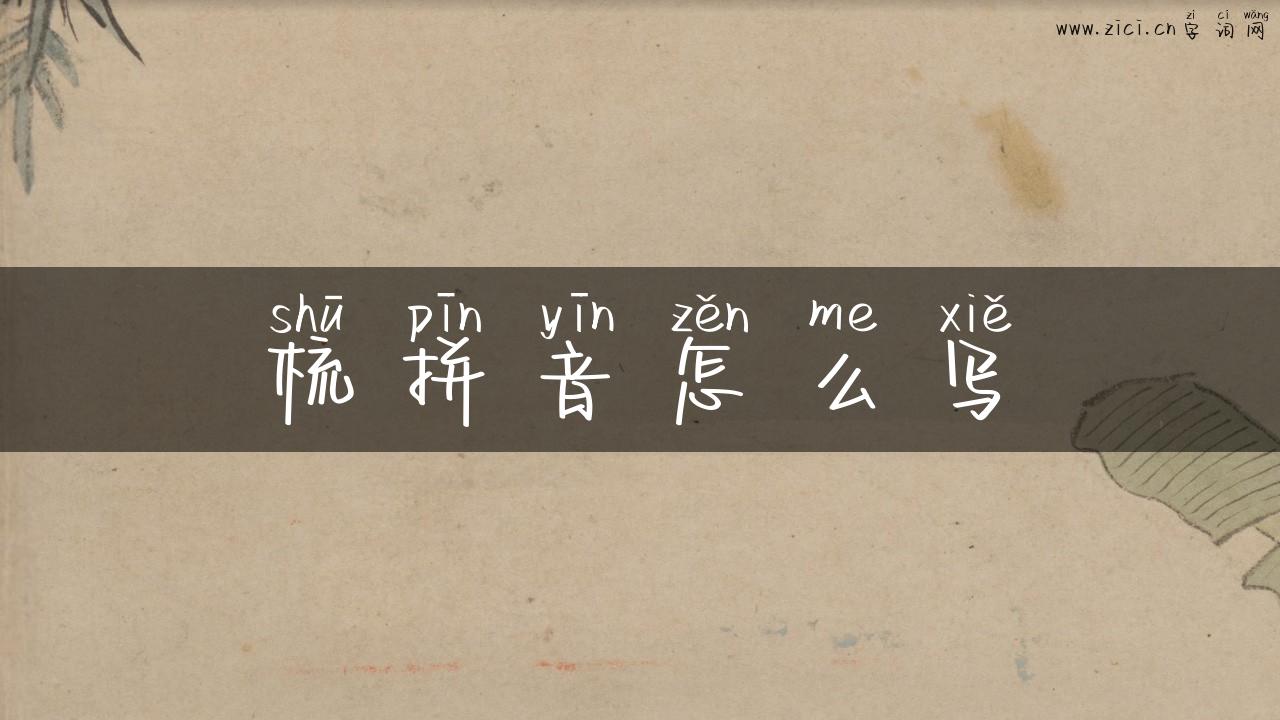 zì cí wǎng
www.zici.cn 字 词 网
shū pīn yīn zěn me xiě
梳 拼 音 怎 么 写